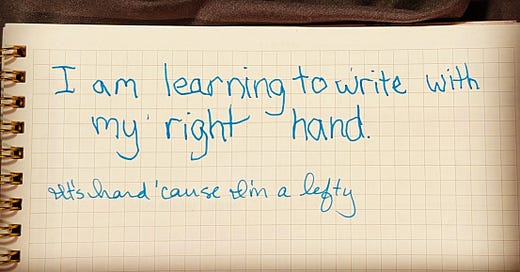 I am learning to write with
my right hand.
It's hard 'cause I'm a lefty